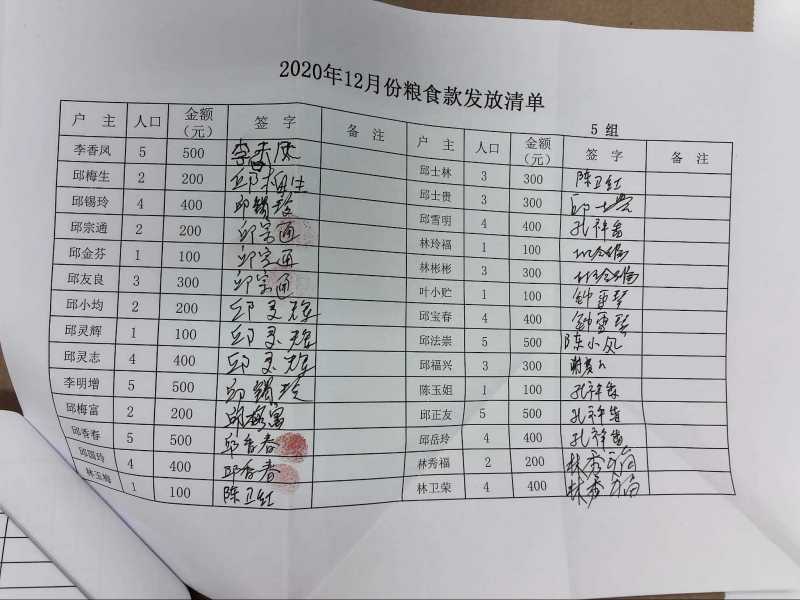 2020年12月份粮食款发放清单
5 组
户 主 人口 金额（元） 签 字 备 注 户 主 人口 金额（元） 签 字 备 注
李香凤 5 500 李香凤 邱士林 3 300 陈卫红
邱梅生 2 200 邱梅生 邱士贵 3 300 邱士贵
邱锡玲 4 400 邱锡玲 邱雪明 4 400
邱宗通 2 200 邱宗通 林玲福 1 100
邱金芬 1 100 邱宗通 林彬彬 3 300
邱友良 3 300 邱宗通 叶小贮 1 100
邱小均 2 200 邱宝春 4 400
邱灵辉 1 100 邱法崇 5 500 陈小凤
邱灵志 4 400 邱福兴 3 300
李明增 5 500 邱锡玲 陈玉姐 1 100
邱梅富 2 200 邱梅富 邱正友 5 500
邱香春 5 500 邱香春 邱岳玲 4 400
邱国玲 4 400 邱香春 林秀福 2 200 林秀福
林玉梅 1 100 陈卫红 林卫荣 4 400 林秀福